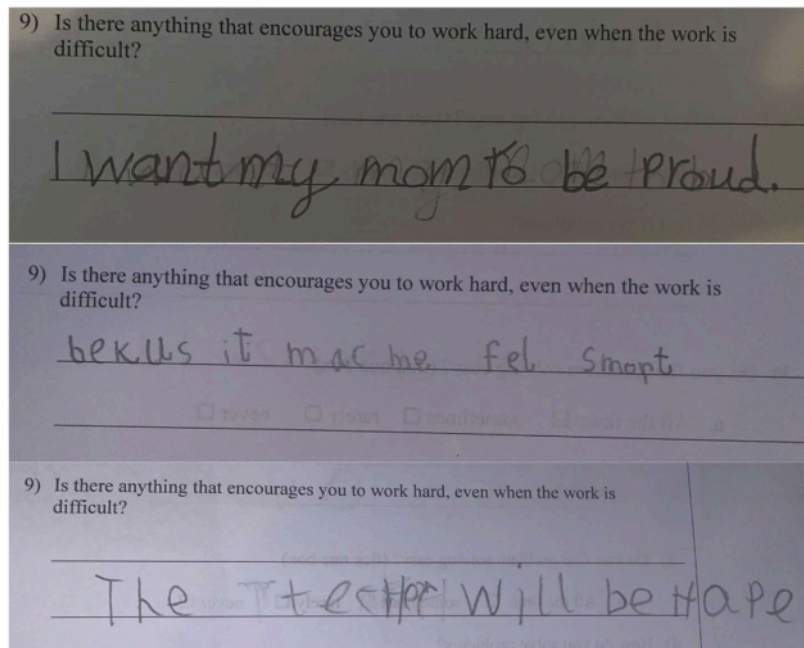 9) Is there anything that encourages you to work hard, even when the work is
difficult?
I want my mom to be proud.
9) Is there anything that encourages you to work hard, even when the work is
difficult?
bekus it mac me fel smart
9) Is there anything that encourages you to work hard, even when the work is
difficult?
The techer will be Hape